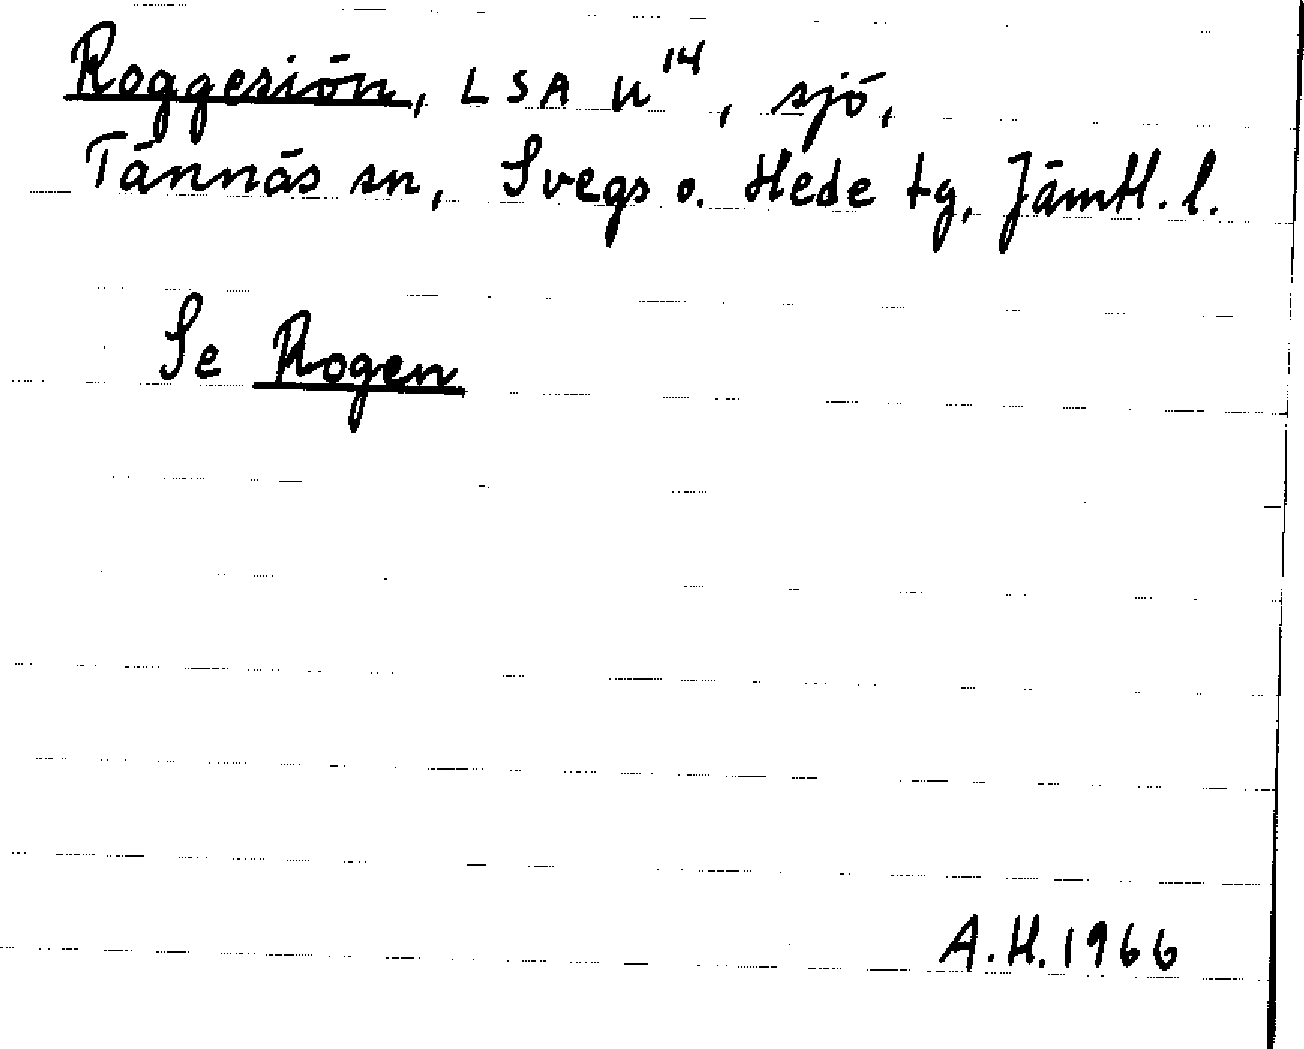 Roggesiön, LSA U¹⁴, sjö,
Tännäs sn, Svegs o. Hede tg, Jämtl. l.
Se Rogen
A.H. 1966